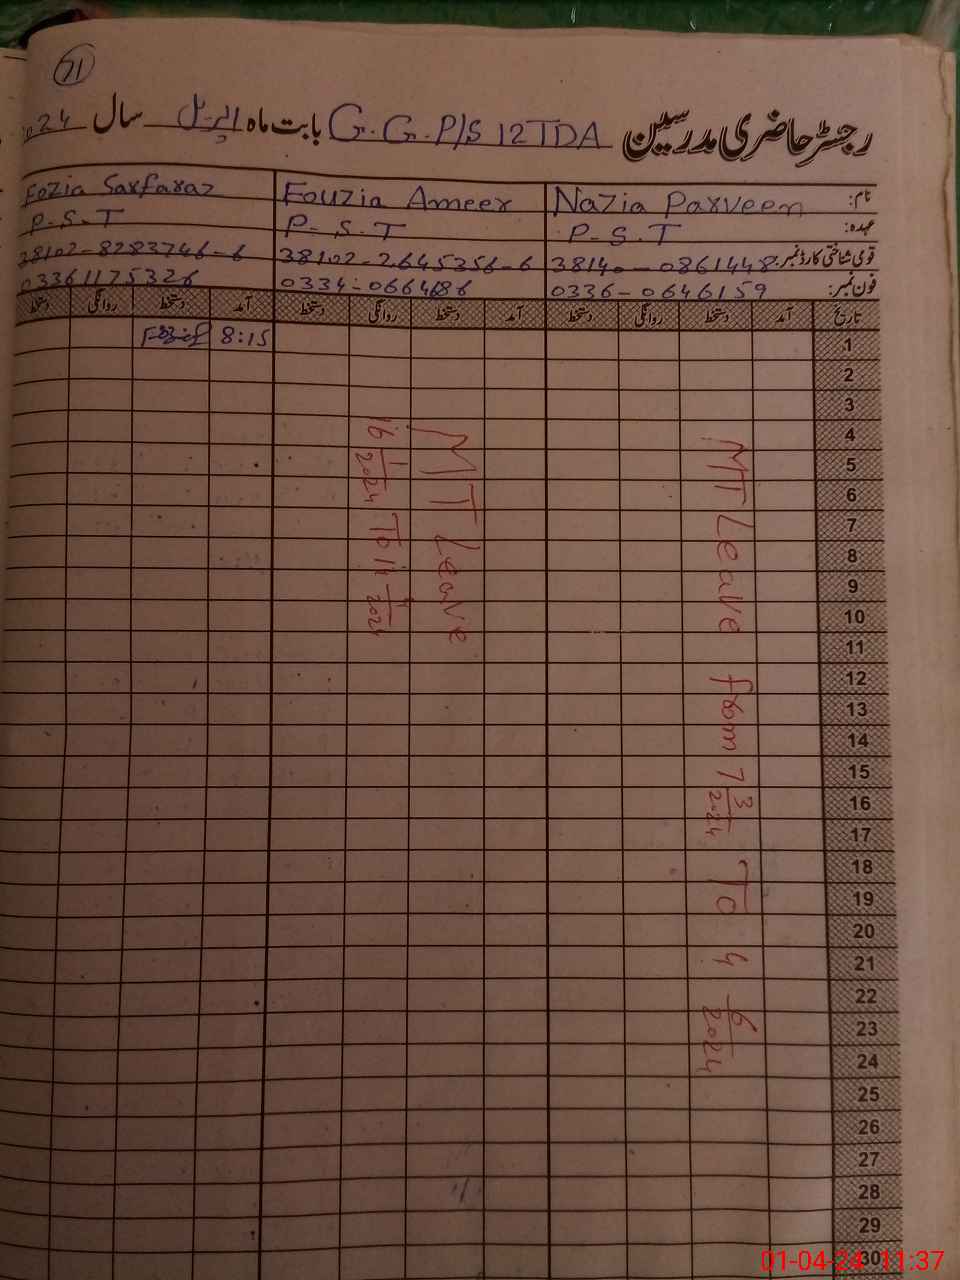 71
رجسٹر حاضری مدرسین G.G.P/S 12TDA بابت ماہ اپریل سال 2024
نام: Nazia Parveen Fouzia Ameer Fozia Sarfaraz
عہدہ: P-S.T P-S.T P-S.T
قومی شناختی کارڈ نمبر: 38140-0861448 38102-2645356-6 38102-8283746-6
فون نمبر: 0336-0646159 0334-0664686 03361175326
تاریخ آمد دستخط روانگی دستخط آمد دستخط روانگی دستخط آمد دستخط روانگی دستخط
1 8:15
2
3
4
5
6
7
8
9
10
11
12
13
14
15
16
17
18
19
20
21
22
23
24
25
26
27
28
29
30
MT Leave from 7 3/2024 To 4 6/2024
MT Leave
16 1/2024 To 14 4/2024
01-04-24 11:37